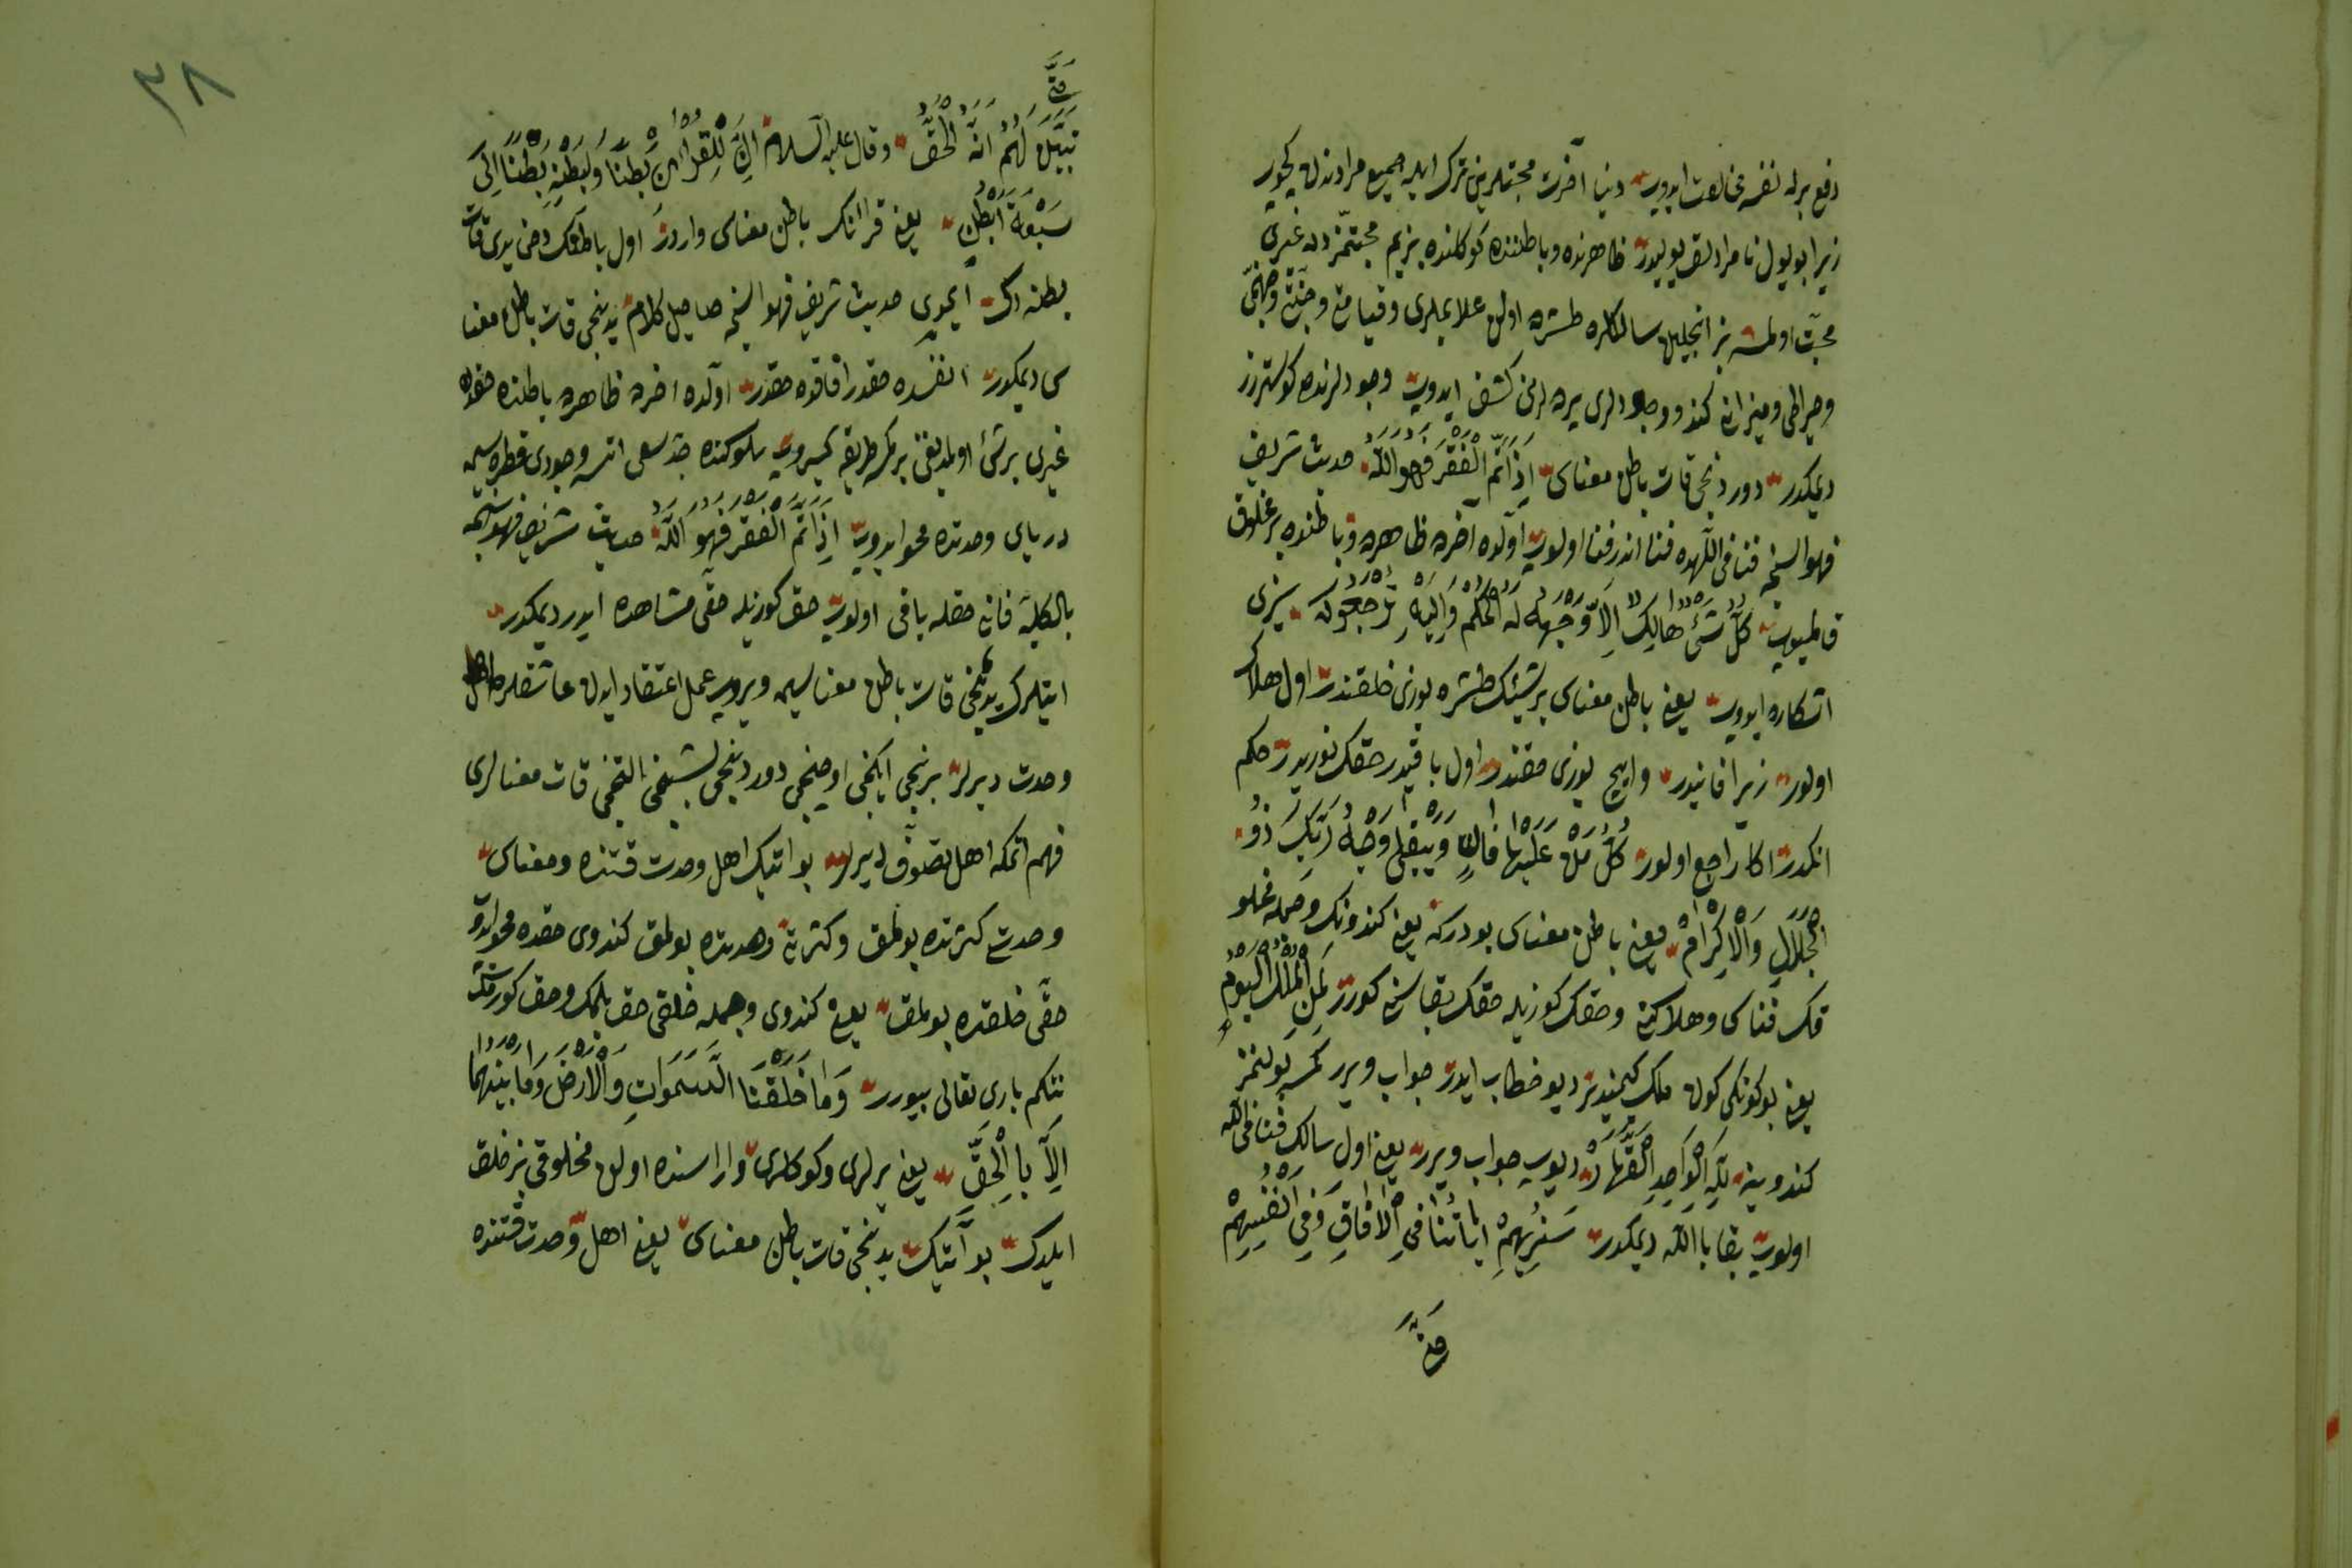 دفع برله نفسه مخالفت ایدوب دنیا آخرت محبتلرین ترك ایله جمیع مرادندن كچوب
زیرا بو یول نامرادلق یولیدر ظاهرنده و باطننده كوكلنده بزیم محبتمزدن غیری
محبت اولمسه بز انجلین سالكلره طشره اولن علایملری و قیامتی و جنتی و جهنمی
و صراطی و میزانی كندو وجودلری یرده لرین كشف ایدوب وجودلرنده كوسترزز
دیمكدر دوردنجی قات باطن معناسی اِذَا تَمَّ الْفَقْرَ فَهُوَ اللّٰهُ حدیث شریف
فهو السنجه فنا فی اللّهده فنا اندر فنا اولوب اولده آخرده ظاهرده و باطنده بر مخلوق
قالمیوب كُلُّ شَیْءٍ هَالِكٌ اِلَّا وَجْهَهُ لَهُ الْحُكْمُ وَاِلَیْهِ تُرْجَعُونَ سرّی
اشكاره ایدوب یعنی باطن معناسی بر شیئك طشره یوزی خلقندر اول هلاك
اولور زیرا فانیدر و ایچ یوزی حقندر اول باقیدر حقك نوریدر حكم
انكدر اكا راجع اولور كُلُّ مَنْ عَلَیْهَا فَانٍ وَیَبْقٰی وَجْهُ رَبِّكَ ذُو
الْجَلَالِ وَالْاِكْرَامِ یعنی باطن معناسی بودركه یعنی كندونك و جمله مخلو
قك فناسی و هلاكنی و حقك كوزیله حقك بقاسنی كورر لِمَنِ الْمُلْكُ الْیَوْمَ
یعنی بو كونكی كون ملك كیمیندر دیو خطاب ایدر جواب ویرر كمسه بولنمز
كندوینه لِلّٰهِ الْوَاحِدِ الْقَهَّارِ دیوب جواب ویرر یعنی اول سالك فنا فی اللّه
اولوب بقا باللّه دیمكدر سَنُرِیهِمْ اٰیَاتِنَا فِی الْاٰفَاقِ وَفِی اَنْفُسِهِمْ
حَتّٰی
٣٨
حَتّٰی
تَبَیَّنَ لَهُمْ اَنَّهُ الْحَقُّ وقال علیه السلام اِنَّ لِلْقُرْاٰنِ بَطْنًا وَلِبَطْنِهِ بَطْنًا اِلٰی
سَبْعَةِ اَبْطُنٍ یعنی قرانك باطن معناسی واردر اول باطنك دخی یدی قات
بطنه دك ایمدی حدیث شریف فهو السنجه حاصل كلام یدنجی قات باطن معنا
سی دیمكدر انفسده حقدر افاقده حقدر اولده اخرده ظاهرده باطنده حقدن
غیری بر شئ اولمدیغن بر كمسه طریقه كیروب سلوكنده جد سعی اتسه وجودی قطره سین
دریای وحدتده محو ایدوب اِذَا تَمَّ الْفَقْرَ فَهُوَ اللّٰهُ حدیث شریف فهو السنجه
بالكلیه فانی حقله باقی اولوب حق كوزیله حقی مشاهده ایدر دیمكدر
ایتلرك یدنجی قات باطن معناسین ویروب عمل اعتقاد ایدن عاشقلره اهل
وحدت دیرلر برنجی ایكنجی اوچنجی دوردنجی بشنجی التنجی قات معنالری
فهم اتمكه اهل تصوف دیرلر بو ایتك اهل وحدت قتنده و معناسی
وحدتی كثرتده بولمق و كثرتی وحدتده بولمق كندوی حقده محو ایدوب
حقی خلقده بولمق یعنی كندوی و جمله خلقی حق بلمك و حق كورمكدر
نتكم باری تعالی بیورر وَمَا خَلَقْنَا السَّمٰوَاتِ وَالْاَرْضَ وَمَا بَیْنَهُمَا
اِلَّا بِالْحَقِّ یعنی یرلری و كوكلری و اراسنده اولن مخلوقی بز خلق
ایلدك بو آیتك یدنجی قات باطن معناسی یعنی اهل وحدت قتنده